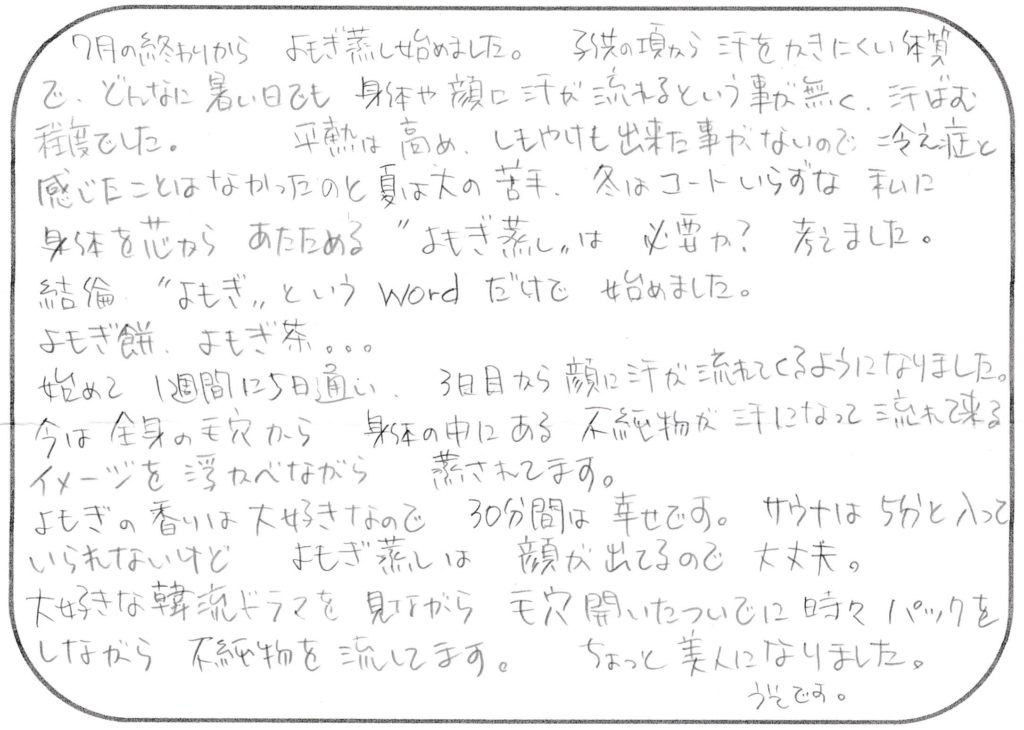 7月の終わりから よもぎ蒸し始めました。 子供の頃から 汗をかきにくい体質
で、どんなに暑い日でも 身体や顔に汗が流れるという事が無く、汗ばむ
程度でした。 平熱は高め、しもやけも出来た事がないので 冷え症と
感じたことはなかったのと夏は大の苦手、冬はコートいらずな 私に
身体を芯から あたためる "よもぎ蒸し"は 必要か? 考えました。
結倫 "よもぎ"という word だけで 始めました。
よもぎ餅、よもぎ茶。。。
始めて 1週間に5日通い、 3日目から顔に汗が流れてくるようになりました。
今は全身の毛穴から 身体の中にある 不純物が 汗になって流れて来る
イメージを浮かべながら 蒸されてます。
よもぎの香りは大好きなので 30分間は幸せです。 サウナは5分と入って
いられないけど よもぎ蒸しは 顔が出てるので 大丈夫。
大好きな韓流ドラマを見ながら 毛穴開いたついでに時々パックを
しながら 不純物を流してます。 ちょっと美人になりました。
うそです。